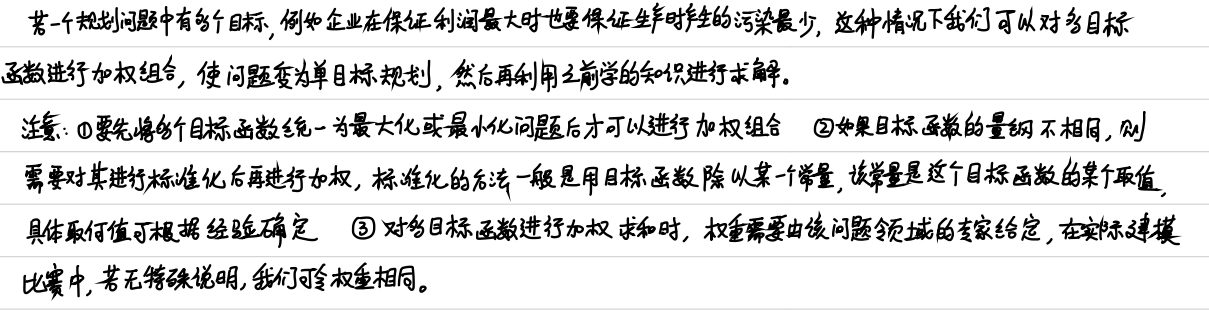 若一个规划问题中有多个目标,例如企业在保证利润最大时也要保证生产时产生的污染最少,这种情况下我们可以对多目标
函数进行加权组合,使问题变为单目标规划,然后再利用之前学的知识进行求解。
注意:①要先将多个目标函数统一为最大化或最小化问题后才可以进行加权组合 ②如果目标函数的量纲不相同,则
需要对其进行标准化后再进行加权,标准化的方法一般是用目标函数除以某一个常量,该常量是这个目标函数的某个取值,
具体取何值可根据经验确定 ③对多目标函数进行加权求和时,权重需要由该问题领域的专家给定,在实际建模
比赛中,若无特殊说明,我们可令权重相同。